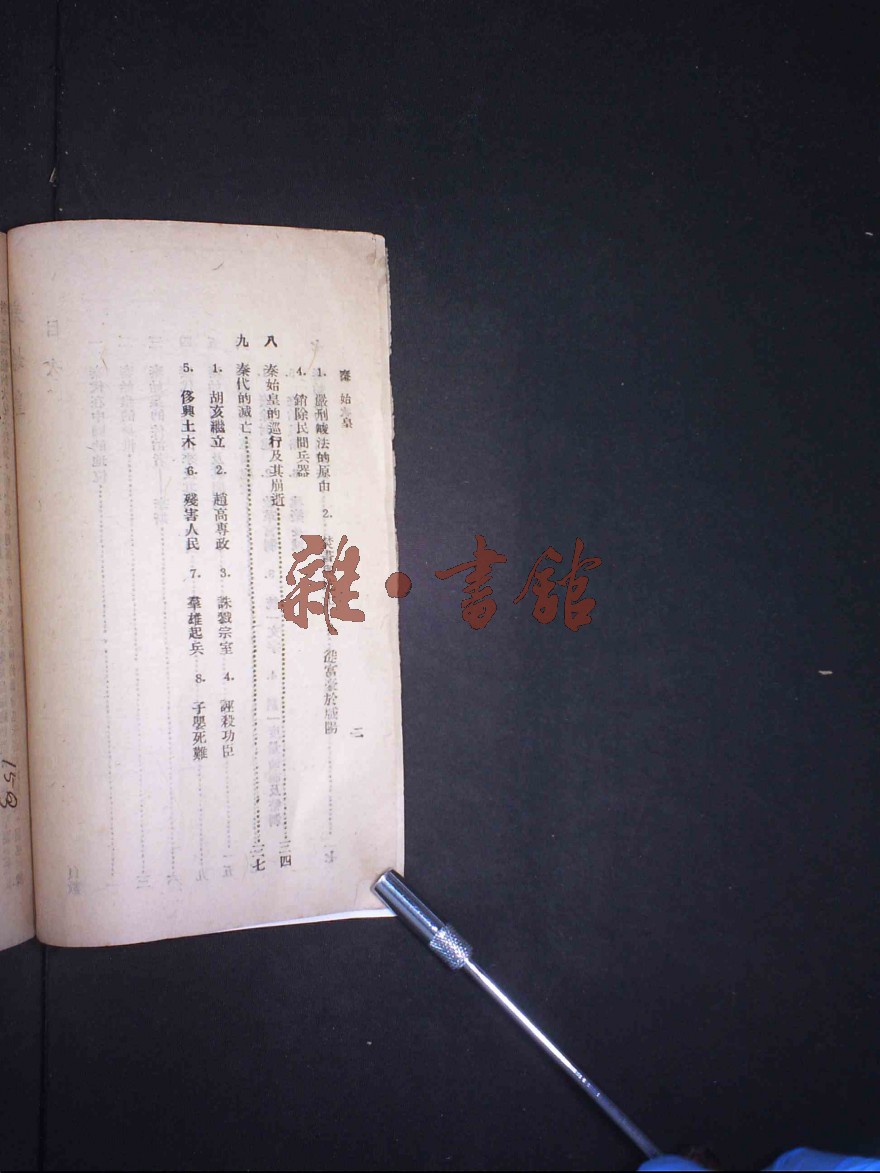 秦始皇
二
1. 嚴刑峻法的原由 2. 焚書 徙富豪於咸陽
4. 銷除民間兵器
八 秦始皇的巡行及其崩逝 三四
九 秦代的滅亡 三七
1. 胡亥繼立 2. 趙高專政 3. 誅戮宗室 4. 誣殺功臣
5. 侈興土木 6. 殘害人民 7. 羣雄起兵 8. 子嬰死難
雜·書館
153